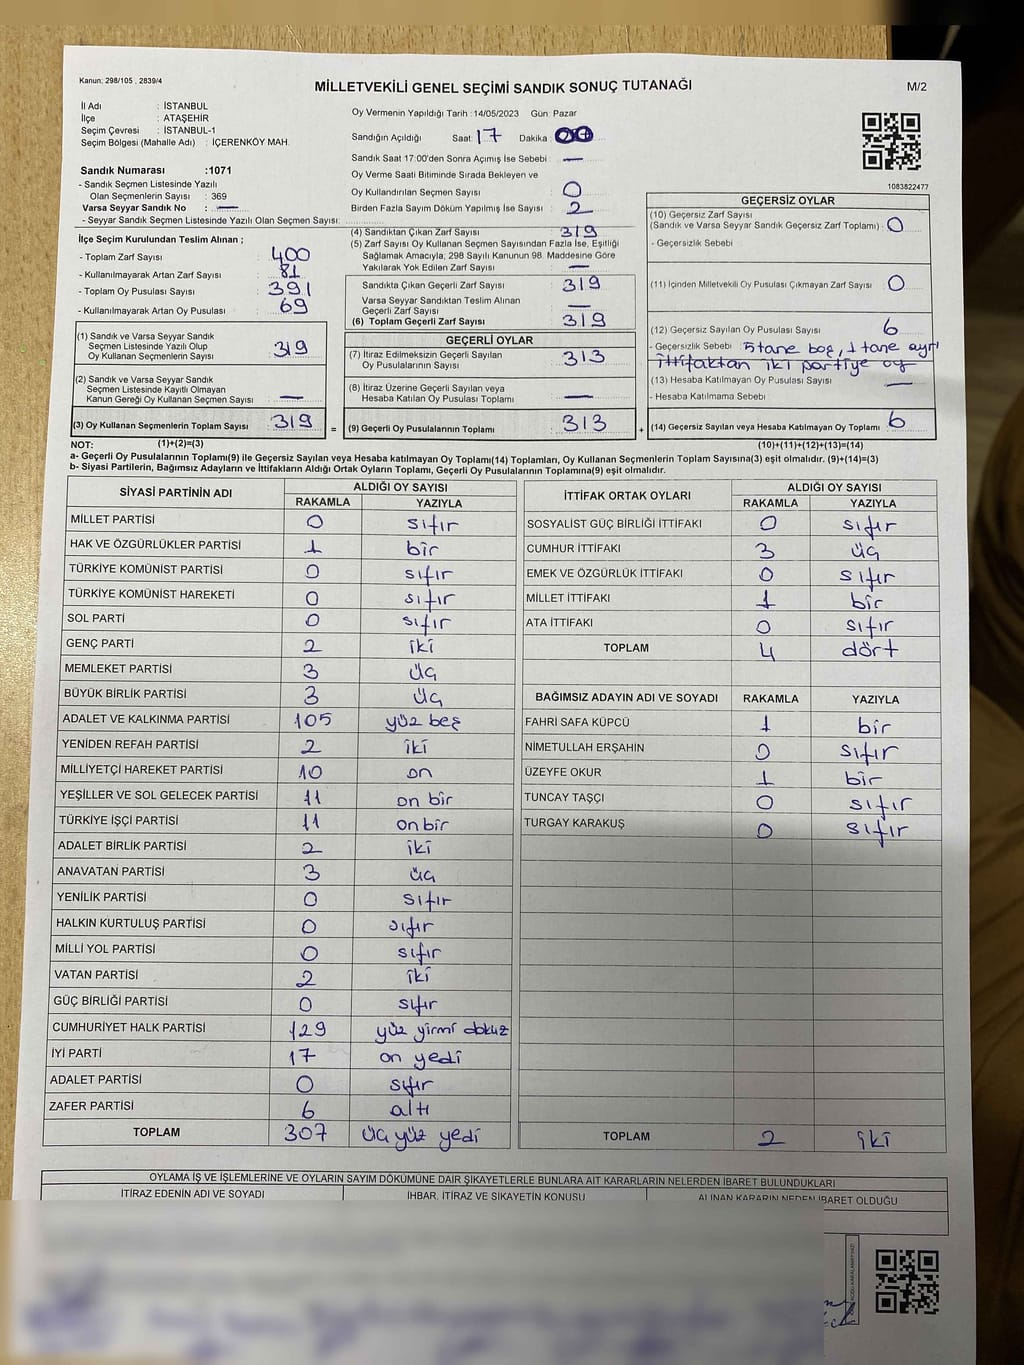 Kanun: 298/105 , 2839/4
MİLLETVEKİLİ GENEL SEÇİMİ SANDIK SONUÇ TUTANAĞI
M/2
İl Adı : İSTANBUL
İlçe : ATAŞEHİR
Seçim Çevresi : İSTANBUL-1
Seçim Bölgesi (Mahalle Adı) : İÇERENKÖY MAH.
Sandık Numarası :1071
- Sandık Seçmen Listesinde Yazılı
Olan Seçmenlerin Sayısı : 369
Varsa Seyyar Sandık No : —
- Seyyar Sandık Seçmen Listesinde Yazılı Olan Seçmen Sayısı:
Oy Vermenin Yapıldığı Tarih :14/05/2023 Gün: Pazar
Sandığın Açıldığı Saat: 17 Dakika : 00
Sandık Saat 17:00'den Sonra Açımış İse Sebebi : —
Oy Verme Saati Bitiminde Sırada Bekleyen ve
Oy Kullandırılan Seçmen Sayısı : 0
Birden Fazla Sayım Döküm Yapılmış İse Sayısı : 2
1083822477
İlçe Seçim Kurulundan Teslim Alınan ;
- Toplam Zarf Sayısı : 400
- Kullanılmayarak Artan Zarf Sayısı : 81
- Toplam Oy Pusulası Sayısı : 391
- Kullanılmayarak Artan Oy Pusulası : 69
(1) Sandık ve Varsa Seyyar Sandık
Seçmen Listesinde Yazılı Olup
Oy Kullanan Seçmenlerin Sayısı : 319
(2) Sandık ve Varsa Seyyar Sandık
Seçmen Listesinde Kayıtlı Olmayan
Kanun Gereği Oy Kullanan Seçmen Sayısı : —
(3) Oy Kullanan Seçmenlerin Toplam Sayısı : 319
(4) Sandıktan Çıkan Zarf Sayısı : 319
(5) Zarf Sayısı Oy Kullanan Seçmen Sayısından Fazla İse, Eşitliği
Sağlamak Amacıyla; 298 Sayılı Kanunun 98. Maddesine Göre
Yakılarak Yok Edilen Zarf Sayısı : —
Sandıkta Çıkan Geçerli Zarf Sayısı : 319
Varsa Seyyar Sandıktan Teslim Alınan
Geçerli Zarf Sayısı : —
(6) Toplam Geçerli Zarf Sayısı : 319
GEÇERLİ OYLAR
(7) İtiraz Edilmeksizin Geçerli Sayılan
Oy Pusulalarının Sayısı : 313
(8) İtiraz Üzerine Geçerli Sayılan veya
Hesaba Katılan Oy Pusulası Toplamı : —
= (9) Geçerli Oy Pusulalarının Toplamı : 313 +
GEÇERSİZ OYLAR
(10) Geçersiz Zarf Sayısı
(Sandık ve Varsa Seyyar Sandık Geçersiz Zarf Toplamı) : 0
- Geçersizlik Sebebi
(11) İçinden Milletvekili Oy Pusulası Çıkmayan Zarf Sayısı : 0
(12) Geçersiz Sayılan Oy Pusulası Sayısı : 6
- Geçersizlik Sebebi : 5 tane boş, 1 tane ayrı
ittifaktan iki partiye oy
(13) Hesaba Katılmayan Oy Pusulası Sayısı : —
- Hesaba Katılmama Sebebi
(14) Geçersiz Sayılan veya Hesaba Katılmayan Oy Toplamı : 6
NOT: (1)+(2)=(3) (10)+(11)+(12)+(13)=(14)
a- Geçerli Oy Pusulalarının Toplamı(9) ile Geçersiz Sayılan veya Hesaba katılmayan Oy Toplamı(14) Toplamları, Oy Kullanan Seçmenlerin Toplam Sayısına(3) eşit olmalıdır. (9)+(14)=(3)
b- Siyasi Partilerin, Bağımsız Adayların ve İttifakların Aldığı Ortak Oyların Toplamı, Geçerli Oy Pusulalarının Toplamına(9) eşit olmalıdır.
SİYASİ PARTİNİN ADI ALDIĞI OY SAYISI
RAKAMLA YAZIYLA
MİLLET PARTİSİ 0 sıfır
HAK VE ÖZGÜRLÜKLER PARTİSİ 1 bir
TÜRKİYE KOMÜNİST PARTİSİ 0 sıfır
TÜRKİYE KOMÜNİST HAREKETİ 0 sıfır
SOL PARTİ 0 sıfır
GENÇ PARTİ 2 iki
MEMLEKET PARTİSİ 3 üç
BÜYÜK BİRLİK PARTİSİ 3 üç
ADALET VE KALKINMA PARTİSİ 105 yüz beş
YENİDEN REFAH PARTİSİ 2 iki
MİLLİYETÇİ HAREKET PARTİSİ 10 on
YEŞİLLER VE SOL GELECEK PARTİSİ 11 on bir
TÜRKİYE İŞÇİ PARTİSİ 11 on bir
ADALET BİRLİK PARTİSİ 2 iki
ANAVATAN PARTİSİ 3 üç
YENİLİK PARTİSİ 0 sıfır
HALKIN KURTULUŞ PARTİSİ 0 sıfır
MİLLİ YOL PARTİSİ 0 sıfır
VATAN PARTİSİ 2 iki
GÜÇ BİRLİĞİ PARTİSİ 0 sıfır
CUMHURİYET HALK PARTİSİ 129 yüz yirmi dokuz
İYİ PARTİ 17 on yedi
ADALET PARTİSİ 0 sıfır
ZAFER PARTİSİ 6 altı
TOPLAM 307 üç yüz yedi
İTTİFAK ORTAK OYLARI ALDIĞI OY SAYISI
RAKAMLA YAZIYLA
SOSYALİST GÜÇ BİRLİĞİ İTTİFAKI 0 sıfır
CUMHUR İTTİFAKI 3 üç
EMEK VE ÖZGÜRLÜK İTTİFAKI 0 sıfır
MİLLET İTTİFAKI 1 bir
ATA İTTİFAKI 0 sıfır
TOPLAM 4 dört
BAĞIMSIZ ADAYIN ADI VE SOYADI RAKAMLA YAZIYLA
FAHRİ SAFA KÜPCÜ 1 bir
NİMETULLAH ERŞAHİN 0 sıfır
ÜZEYFE OKUR 1 bir
TUNCAY TAŞÇI 0 sıfır
TURGAY KARAKUŞ 0 sıfır
TOPLAM 2 iki
OYLAMA İŞ VE İŞLEMLERİNE VE OYLARIN SAYIM DÖKÜMÜNE DAİR ŞİKAYETLERLE BUNLARA AİT KARARLARIN NELERDEN İBARET BULUNDUKLARI
İTİRAZ EDENİN ADI VE SOYADI İHBAR, İTİRAZ VE ŞİKAYETİN KONUSU ALINAN KARARIN NEDEN İBARET OLDUĞU